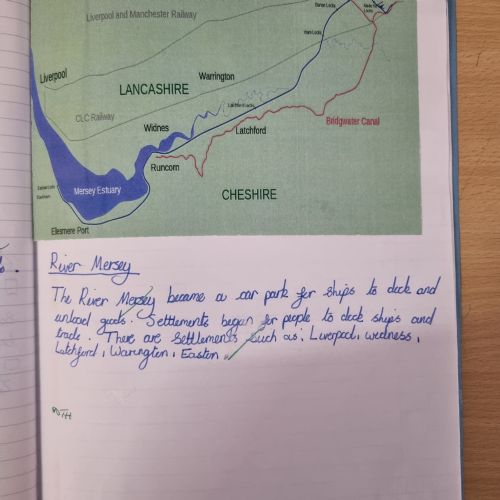 Liverpool and Manchester Railway
Barton Locks
Irlam Locks
Liverpool
LANCASHIRE
Warrington
CLC Railway
Latchford Locks
Widnes
Latchford
Bridgwater Canal
Runcorn
Mersey Estuary
CHESHIRE
Eastham
Ellesmere Port
River Mersey
The River Mersey became a car park for ships to dock and
unload goods. Settlements began for people to dock ships and
trade. There are settlements such as: Liverpool, wedness,
Latchford, Warington, Easton.